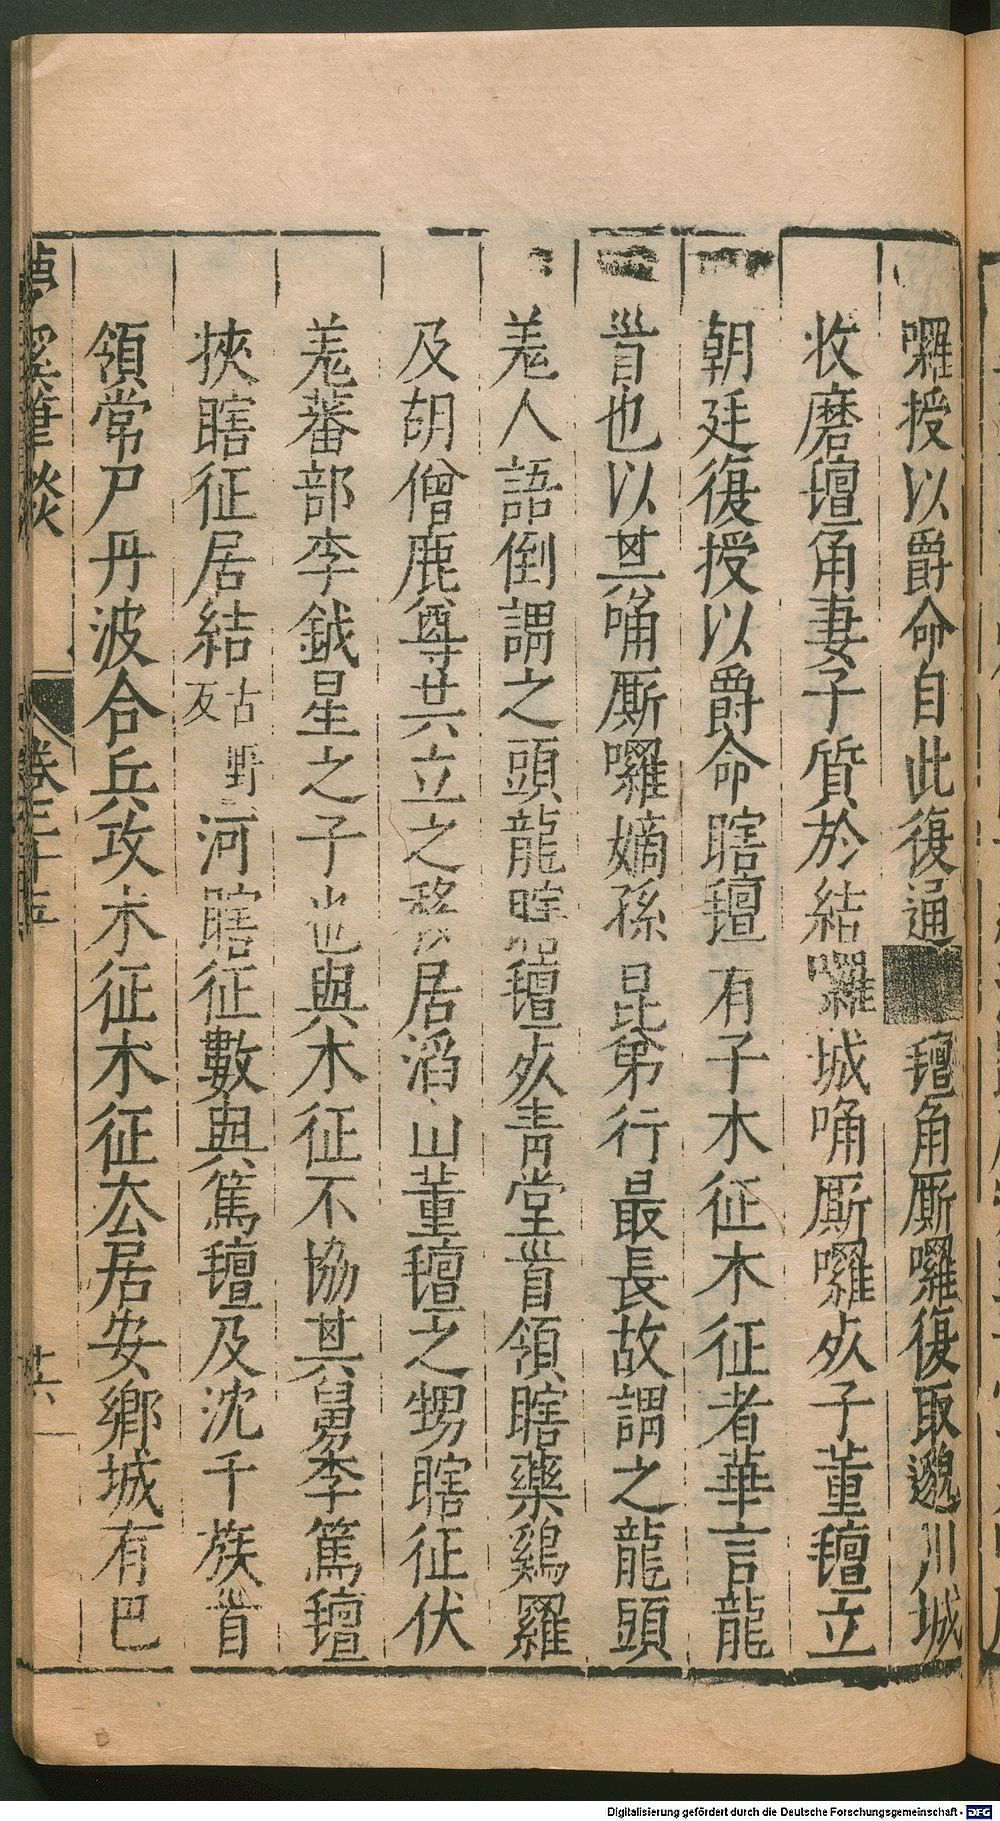 囉授以爵命自此復通■氊角厮囉復取邈川城
收磨氊角妻子質於結囉城唃厮囉死子董氊立
朝廷復授以爵命瞎氊有子木征木征者華言龍
頭也以其唃厮囉嫡孫昆弟行最長故謂之龍頭
羌人語倒謂之頭龍瞎氊死青堂首領瞎藥鷄羅
及胡僧鹿尊共立之移居滔山董氊之甥瞎征伏
羌蕃部李鉞星之子也與木征不協其舅李篤氊
挾瞎征居結古野反河瞎征數與篤氊及沈千族首
領常尸丹波合兵攻木征木征去居安鄉城有巴
夢溪筆談 卷二十五 十六
Digitalisierung gefördert durch die Deutsche Forschungsgemeinschaft - DFG